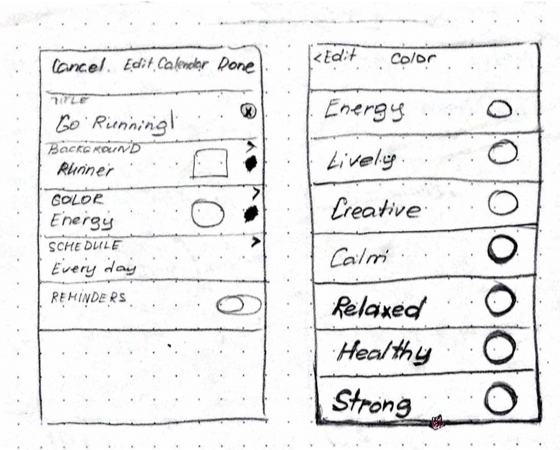 Cancel Edit Calendar Done
TITLE
Go Running
BACKGROUND
Runner
COLOR
Energy
SCHEDULE
Every day
REMINDERS
<Edit Color
Energy
Lively
Creative
Calm
Relaxed
Healthy
Strong